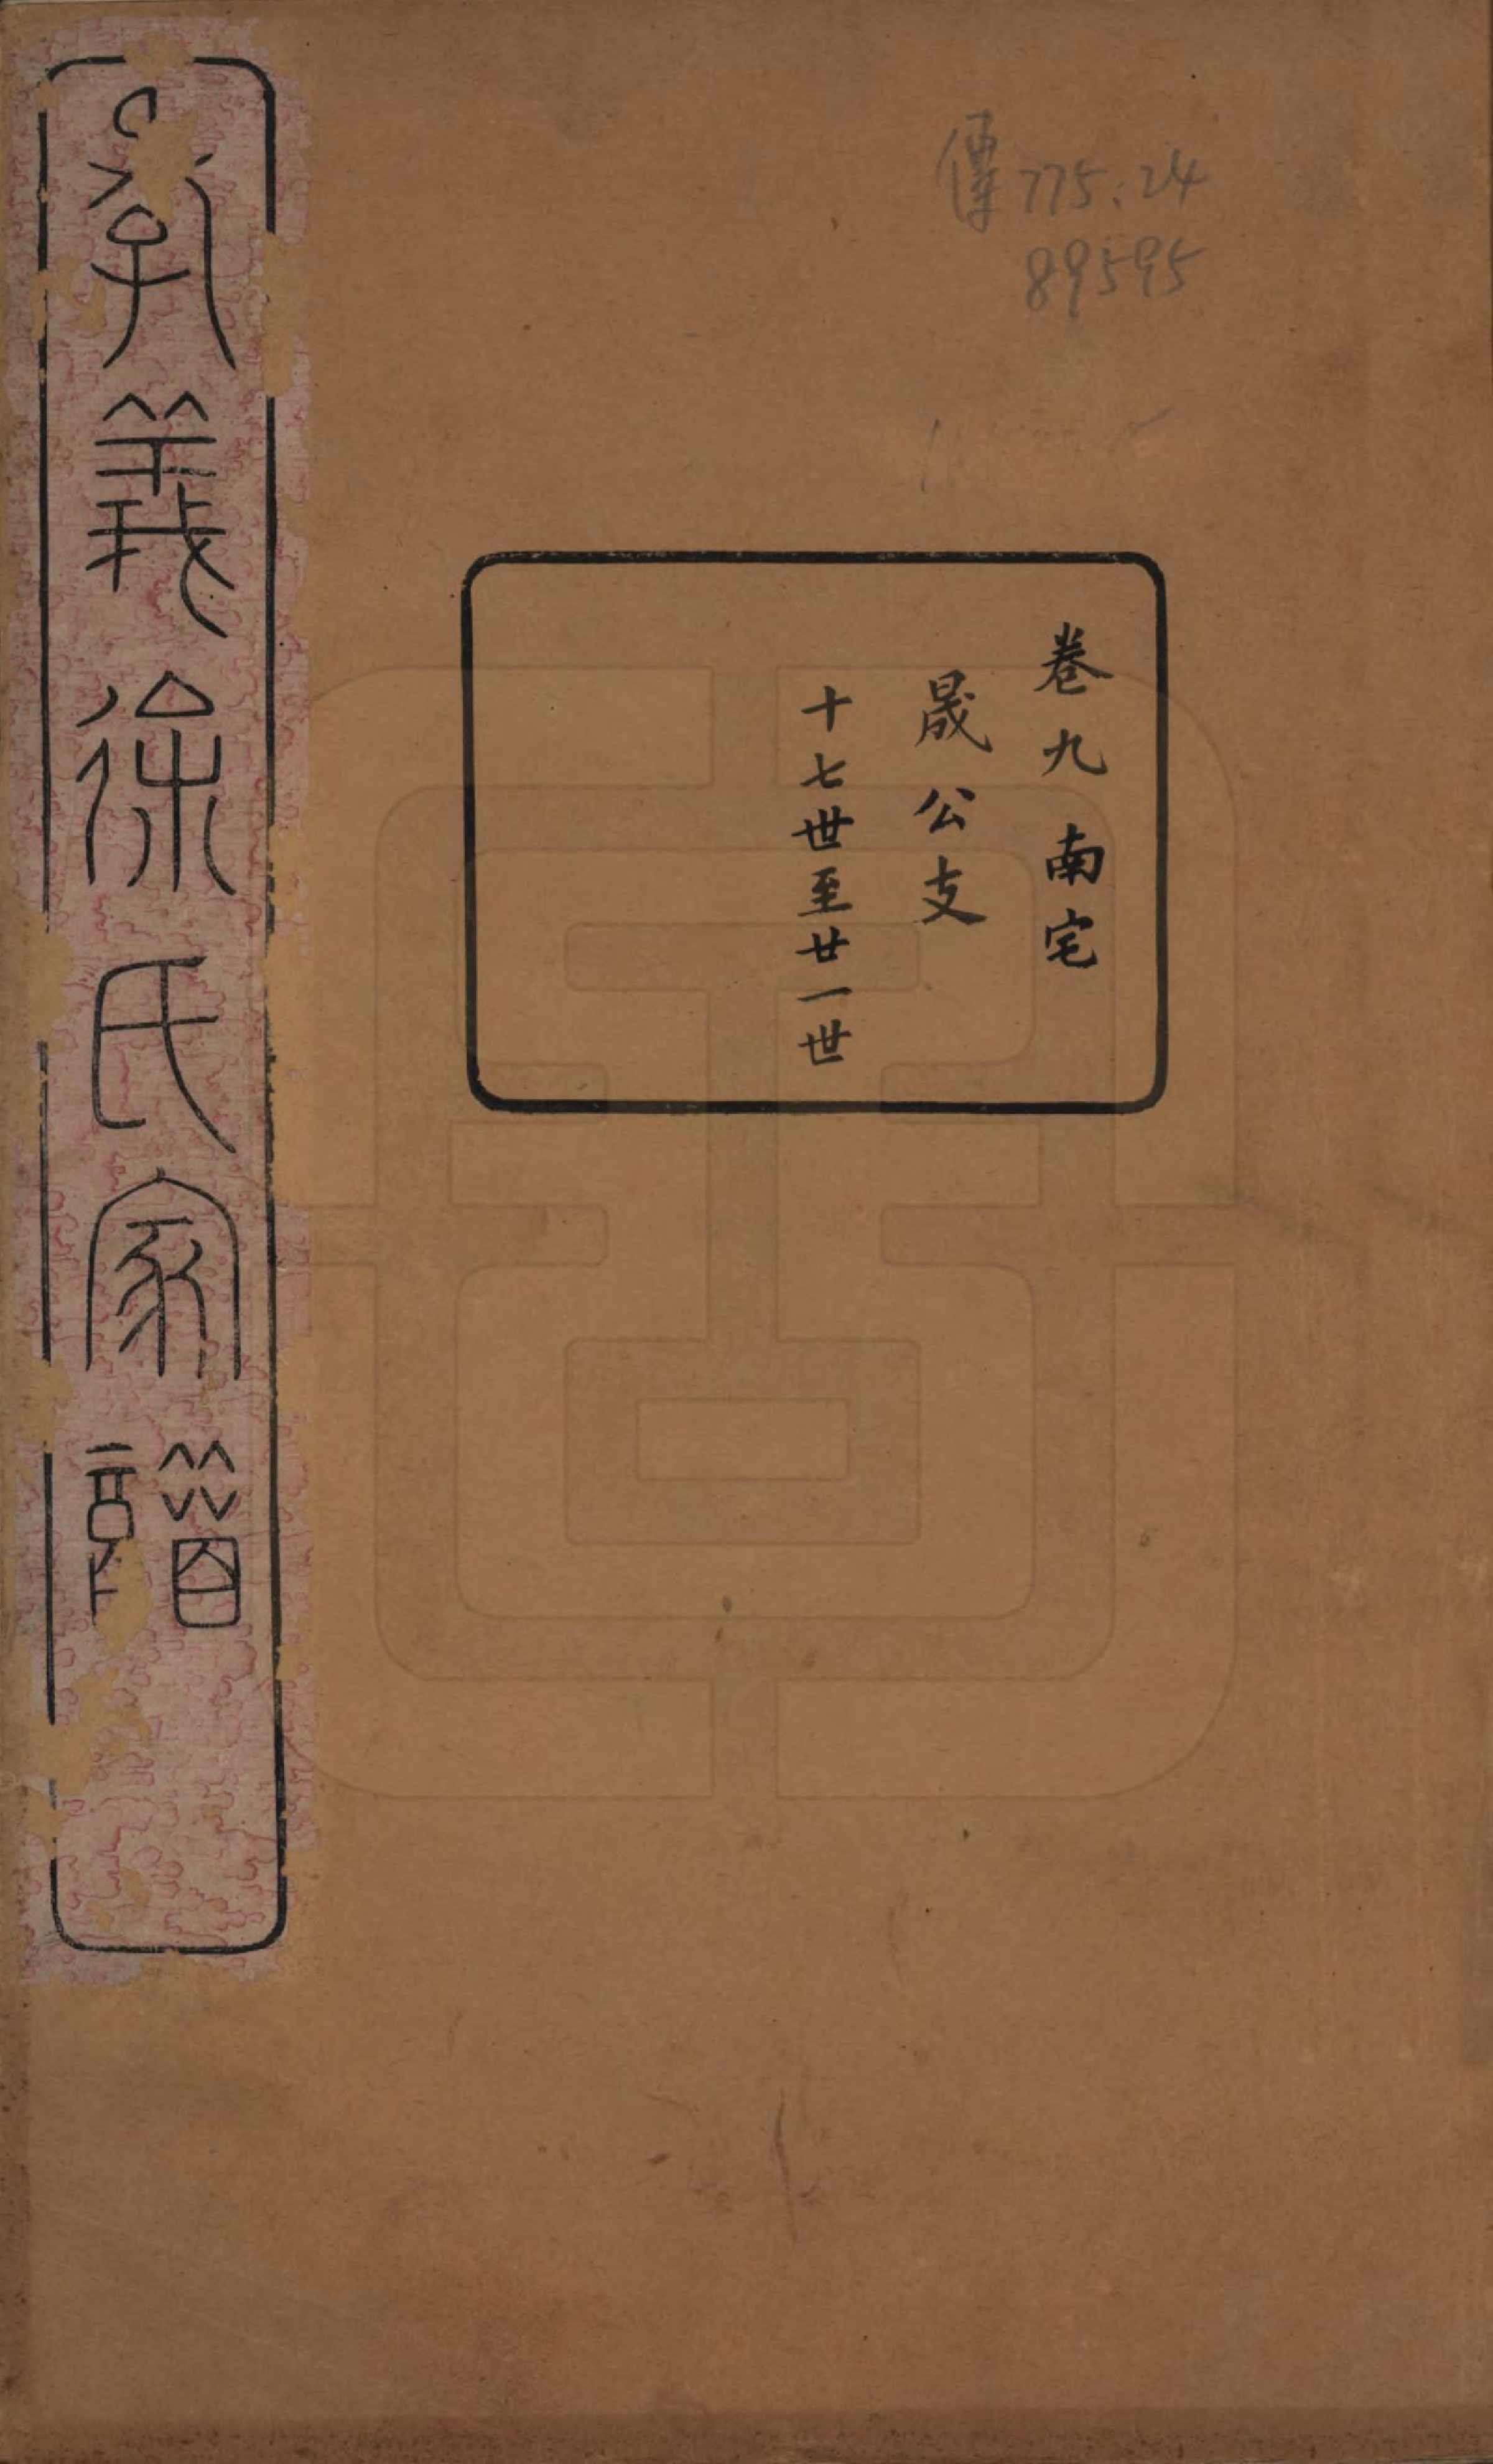 傳775.24
89595
卷九 南宅
晟公支
十七世至廿一世
義徐氏家譜